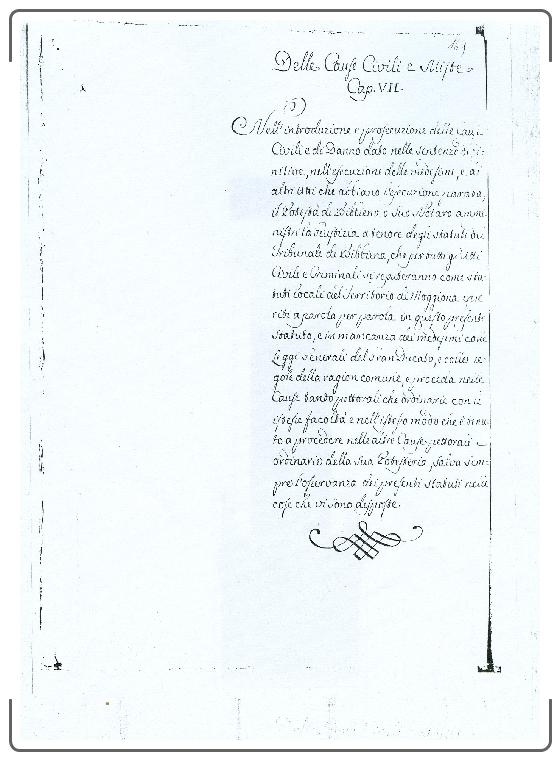 Delle Cause Civili e Miste
Cap. VII.
Nell'introduzione e prosecuzione delle cause
Civili e di Danno dato nelle sentenze di
nitive, nell'esecuzioni delle medesime, e, ai
altri atti che abbiano esecuzione parata,
il Potestà di Bibbiena o suo Notaro ammi
nistri la giustizia a tenore degli statuti du
Tribunale di Bibbiena, che per tutti gl'Atti
Civili e Criminali si reputeranno come sta
tuti locali del Territorio di Moggiona
riti a parola per parola in questo presente
statuto, e in mancanza dei medesimi con
leggi generali del Gran Ducato, e colle re
gole della ragion comune, e proceda nelle
Cause tanto pettorali che ordinarie con le
istesse facoltà e nell'istesso modo che è tenu
to a procedere nelle altre Cause pettorali
ordinarie della sua Potesteria, salva sem
pre l'osservanza dei presenti statuti nelle
cose che vi sono disposte.